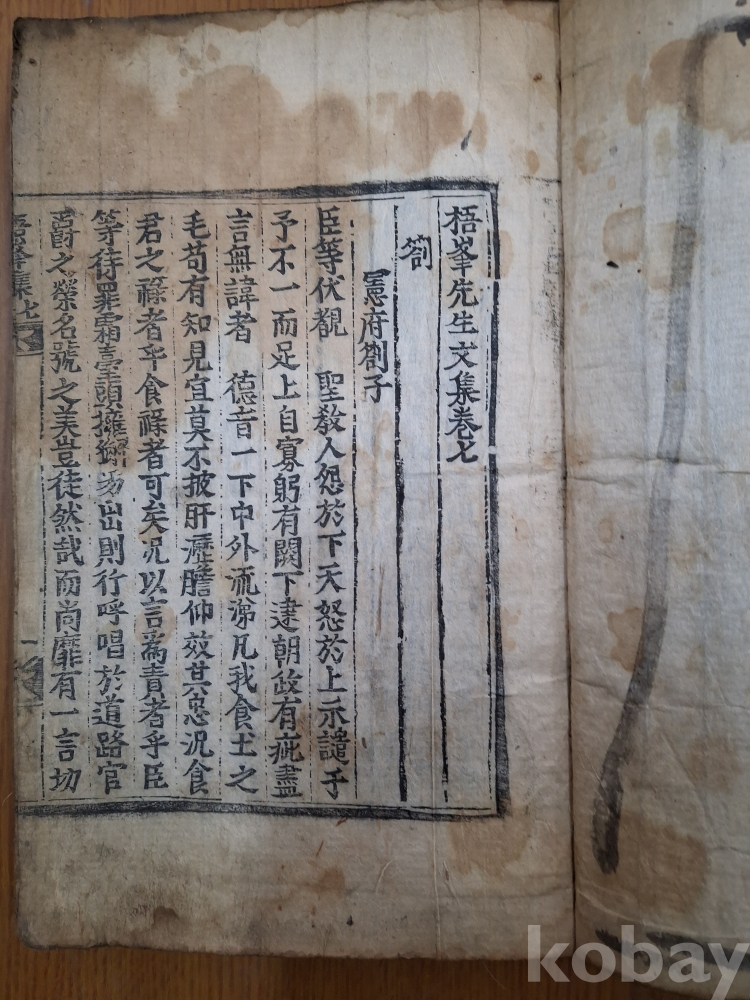 梧峯先生文集卷七
劄
憲府劄子
臣等伏覩 聖敎人怨於下天怒於上示譴予
予不一而足上自寡躬有闕下逮朝政有疵盡
言無諱者 德音一下中外流涕凡我食土之
毛苟有知見宜莫不披肝瀝膽仰效其忠況食
君之祿者乎食祿者可矣況以言爲責者乎臣
等待罪霜臺頭擁 出則行呼唱於道路官
爵之榮名號之美豈徒然哉而尚靡有一言切
梧峯集 七
一
kobay